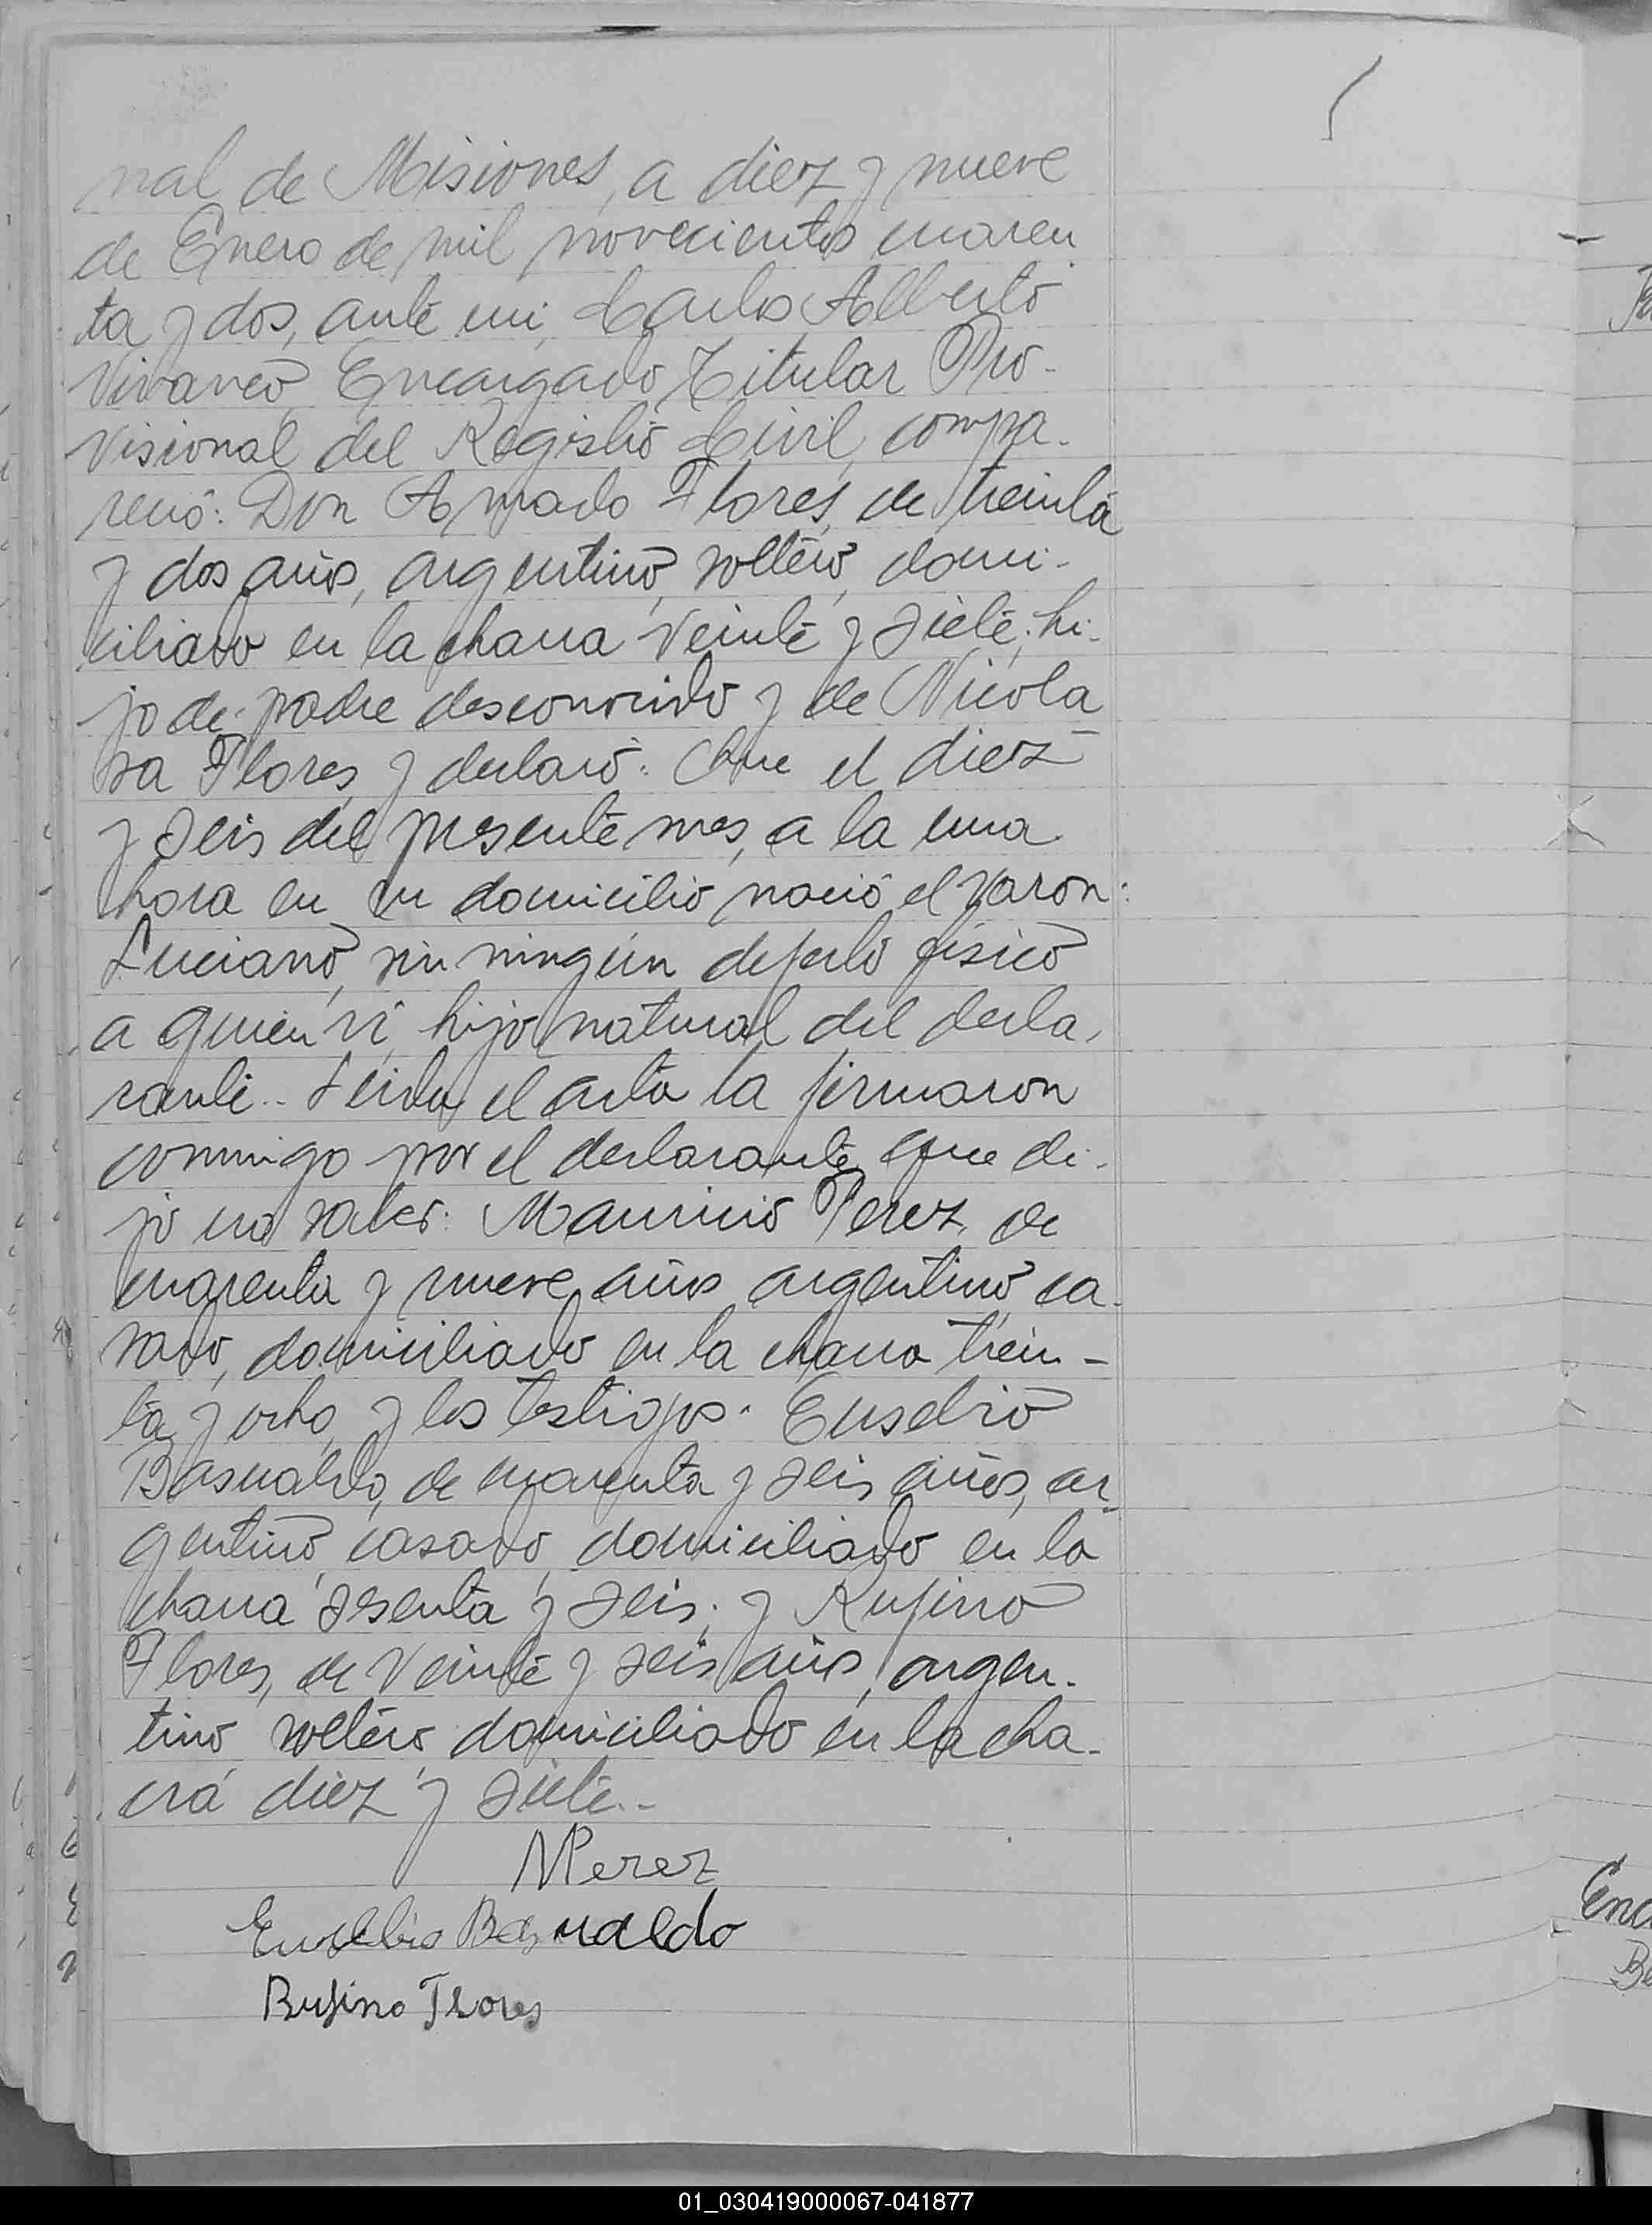 nal de Misiones, a diez y nueve
de Enero de mil novecientos cuaren
ta y dos, ante mi, Carlos Alberto
Vivanco, Encargado Titular Pro-
visional del Registro Civil, compa-
reció: Don Amado Flores, de treinta
y dos años, argentino, soltero, domi-
ciliado en la chacra veinte y siete; hi-
jo de padre desconocido y de Nicola
sa Flores, y declaró: Que el diez
y seis del presente mes, a la una
hora en su domicilio nació el varon:
Luciano, sin ningún defecto físico
a quien ví, hijo natural del decla-
rante.- Leida el acta la firmaron
conmigo por el declarante que di-
jo no saber: Mauricio Perez, de
cuarenta y nueve años argentino, ca-
sado, domiciliado en la chacra trein-
ta y ocho, y los testigos: Eusebio
Basualdo, de cuarenta y seis años, ar-
gentino, casado, domiciliado en la
chacra sesenta y seis; y Rufino
Flores, de veinte y seis años, argen-
tino, soltero, domiciliado en la cha-
cra diez y siete.-
MPerez
Eusebio Basualdo
Rufino Flores
Enc
Be
01_030419000067-041877